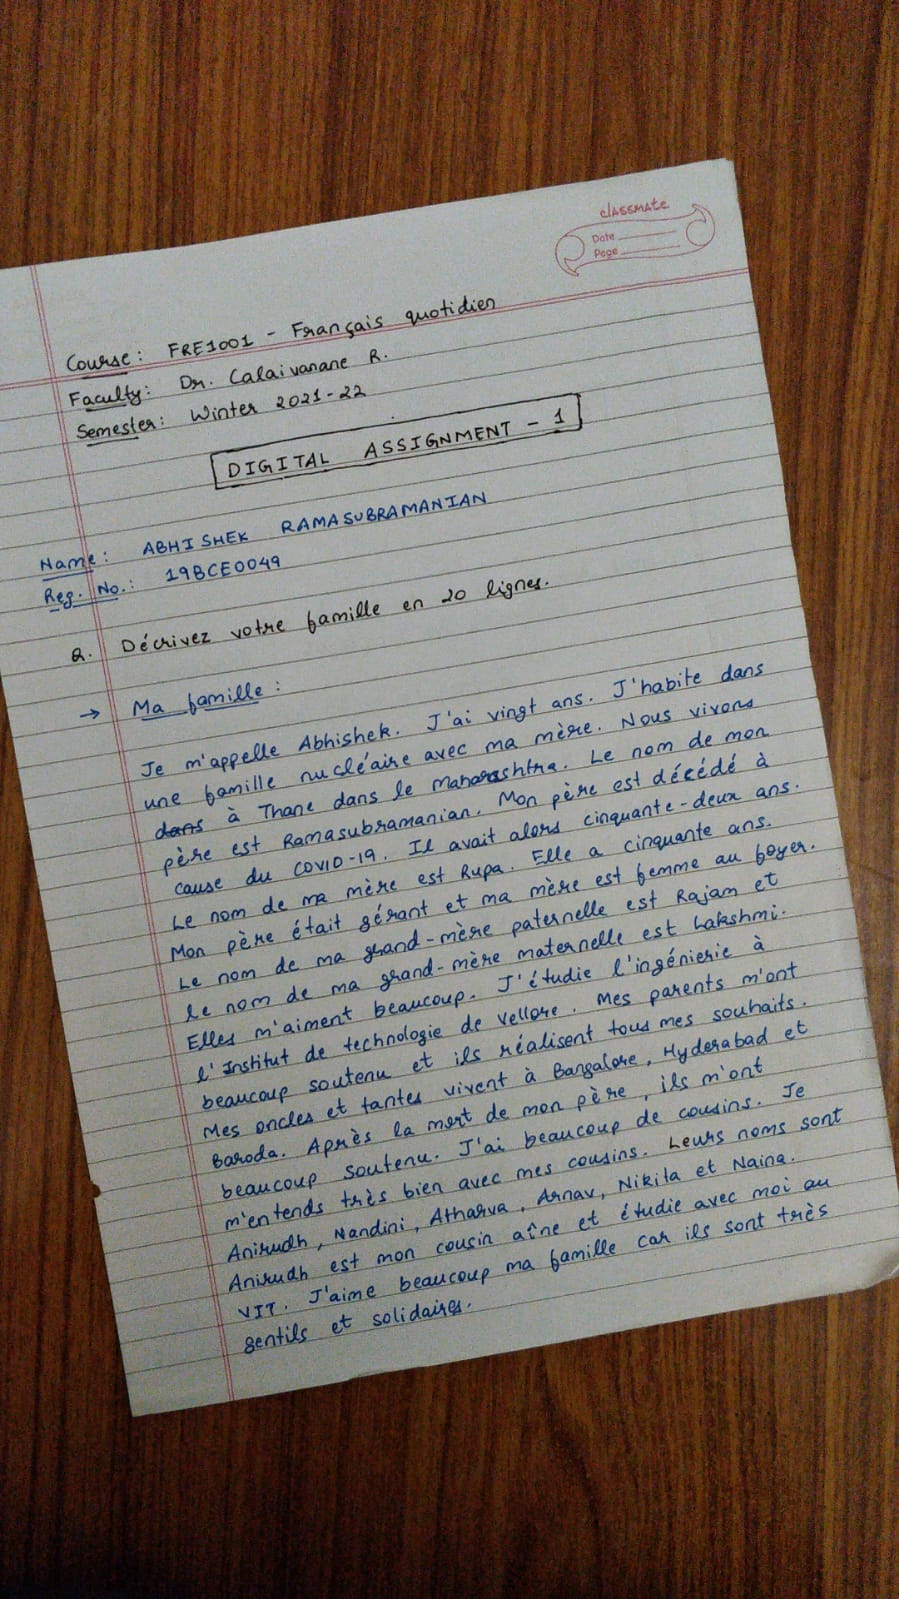 classmate
Date
Page
Course: FRE1001 - Français quotidien
Faculty: Dr. Calaivanane R.
Semester: Winter 2021-22
DIGITAL ASSIGNMENT - 1
Name: ABHISHEK RAMASUBRAMANIAN
Reg. No.: 19BCE0049
Q. Décrivez votre famille en 20 lignes.
→ Ma famille:
Je m'appelle Abhishek. J'ai vingt ans. J'habite dans
une famille nucléaire avec ma mère. Nous vivons
dans à Thane dans le Maharashtra. Le nom de mon
père est Ramasubramanian. Mon père est décédé à
cause du COVID-19. Il avait alors cinquante-deux ans.
Le nom de ma mère est Rupa. Elle a cinquante ans.
Mon père était gérant et ma mère est femme au foyer.
Le nom de ma grand-mère paternelle est Rajam et
le nom de ma grand-mère maternelle est Lakshmi.
Elles m'aiment beaucoup. J'étudie l'ingénierie à
l'Institut de technologie de Vellore. Mes parents m'ont
beaucoup soutenu et ils réalisent tous mes souhaits.
Mes oncles et tantes vivent à Bangalore, Hyderabad et
Baroda. Après la mort de mon père, ils m'ont
beaucoup soutenu. J'ai beaucoup de cousins. Je
m'entends très bien avec mes cousins. Leurs noms sont
Anirudh, Nandini, Atharva, Arnav, Nikita et Naina.
Anirudh est mon cousin aîne et étudie avec moi au
VIT. J'aime beaucoup ma famille car ils sont très
gentils et solidaires.